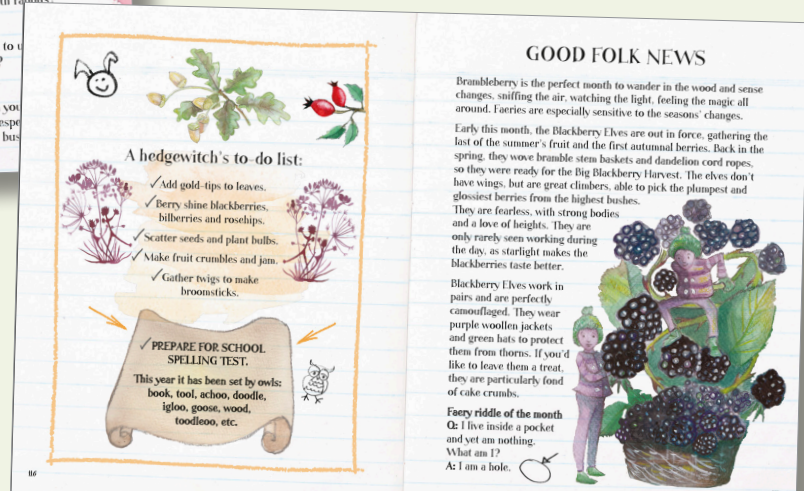 to u
?
you
espe
bus
A hedgewitch's to-do list:
✓Add gold-tips to leaves.
✓Berry shine blackberries,
bilberries and rosehips.
✓Scatter seeds and plant bulbs.
✓Make fruit crumbles and jam.
✓Gather twigs to make
broomsticks.
✓PREPARE FOR SCHOOL
SPELLING TEST.
This year it has been set by owls:
book, tool, achoo, doodle,
igloo, goose, wood,
toodleoo, etc.
116
GOOD FOLK NEWS
Brambleberry is the perfect month to wander in the wood and sense
changes, sniffing the air, watching the light, feeling the magic all
around. Faeries are especially sensitive to the seasons' changes.
Early this month, the Blackberry Elves are out in force, gathering the
last of the summer's fruit and the first autumnal berries. Back in the
spring, they wove bramble stem baskets and dandelion cord ropes,
so they were ready for the Big Blackberry Harvest. The elves don't
have wings, but are great climbers, able to pick the plumpest and
glossiest berries from the highest bushes.
They are fearless, with strong bodies
and a love of heights. They are
only rarely seen working during
the day, as starlight makes the
blackberries taste better.
Blackberry Elves work in
pairs and are perfectly
camouflaged. They wear
purple woollen jackets
and green hats to protect
them from thorns. If you'd
like to leave them a treat,
they are particularly fond
of cake crumbs.
Faery riddle of the month
Q: I live inside a pocket
and yet am nothing.
What am I?
A: I am a hole.